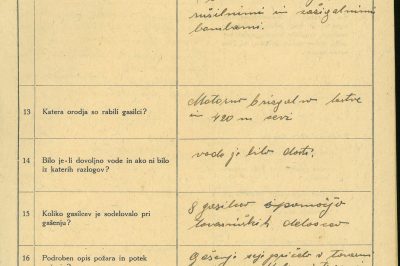 rušilnimi in zažigalnimi
bombami.
13 Katera orodja so rabili gasilci?
Motorno brizgalno lestve
in 420 m cevi
14 Bilo je-li dovoljno vode in ako ni bilo
iz katerih razlogov?
vode je bilo dosti.
15 Koliko gasilcev je sodelovalo pri
gašenju?
8 gasilcev s pomočjo
tovarniških delavcev
16 Podroben opis požara in potek
Gašenje se je pričelo v tovarni